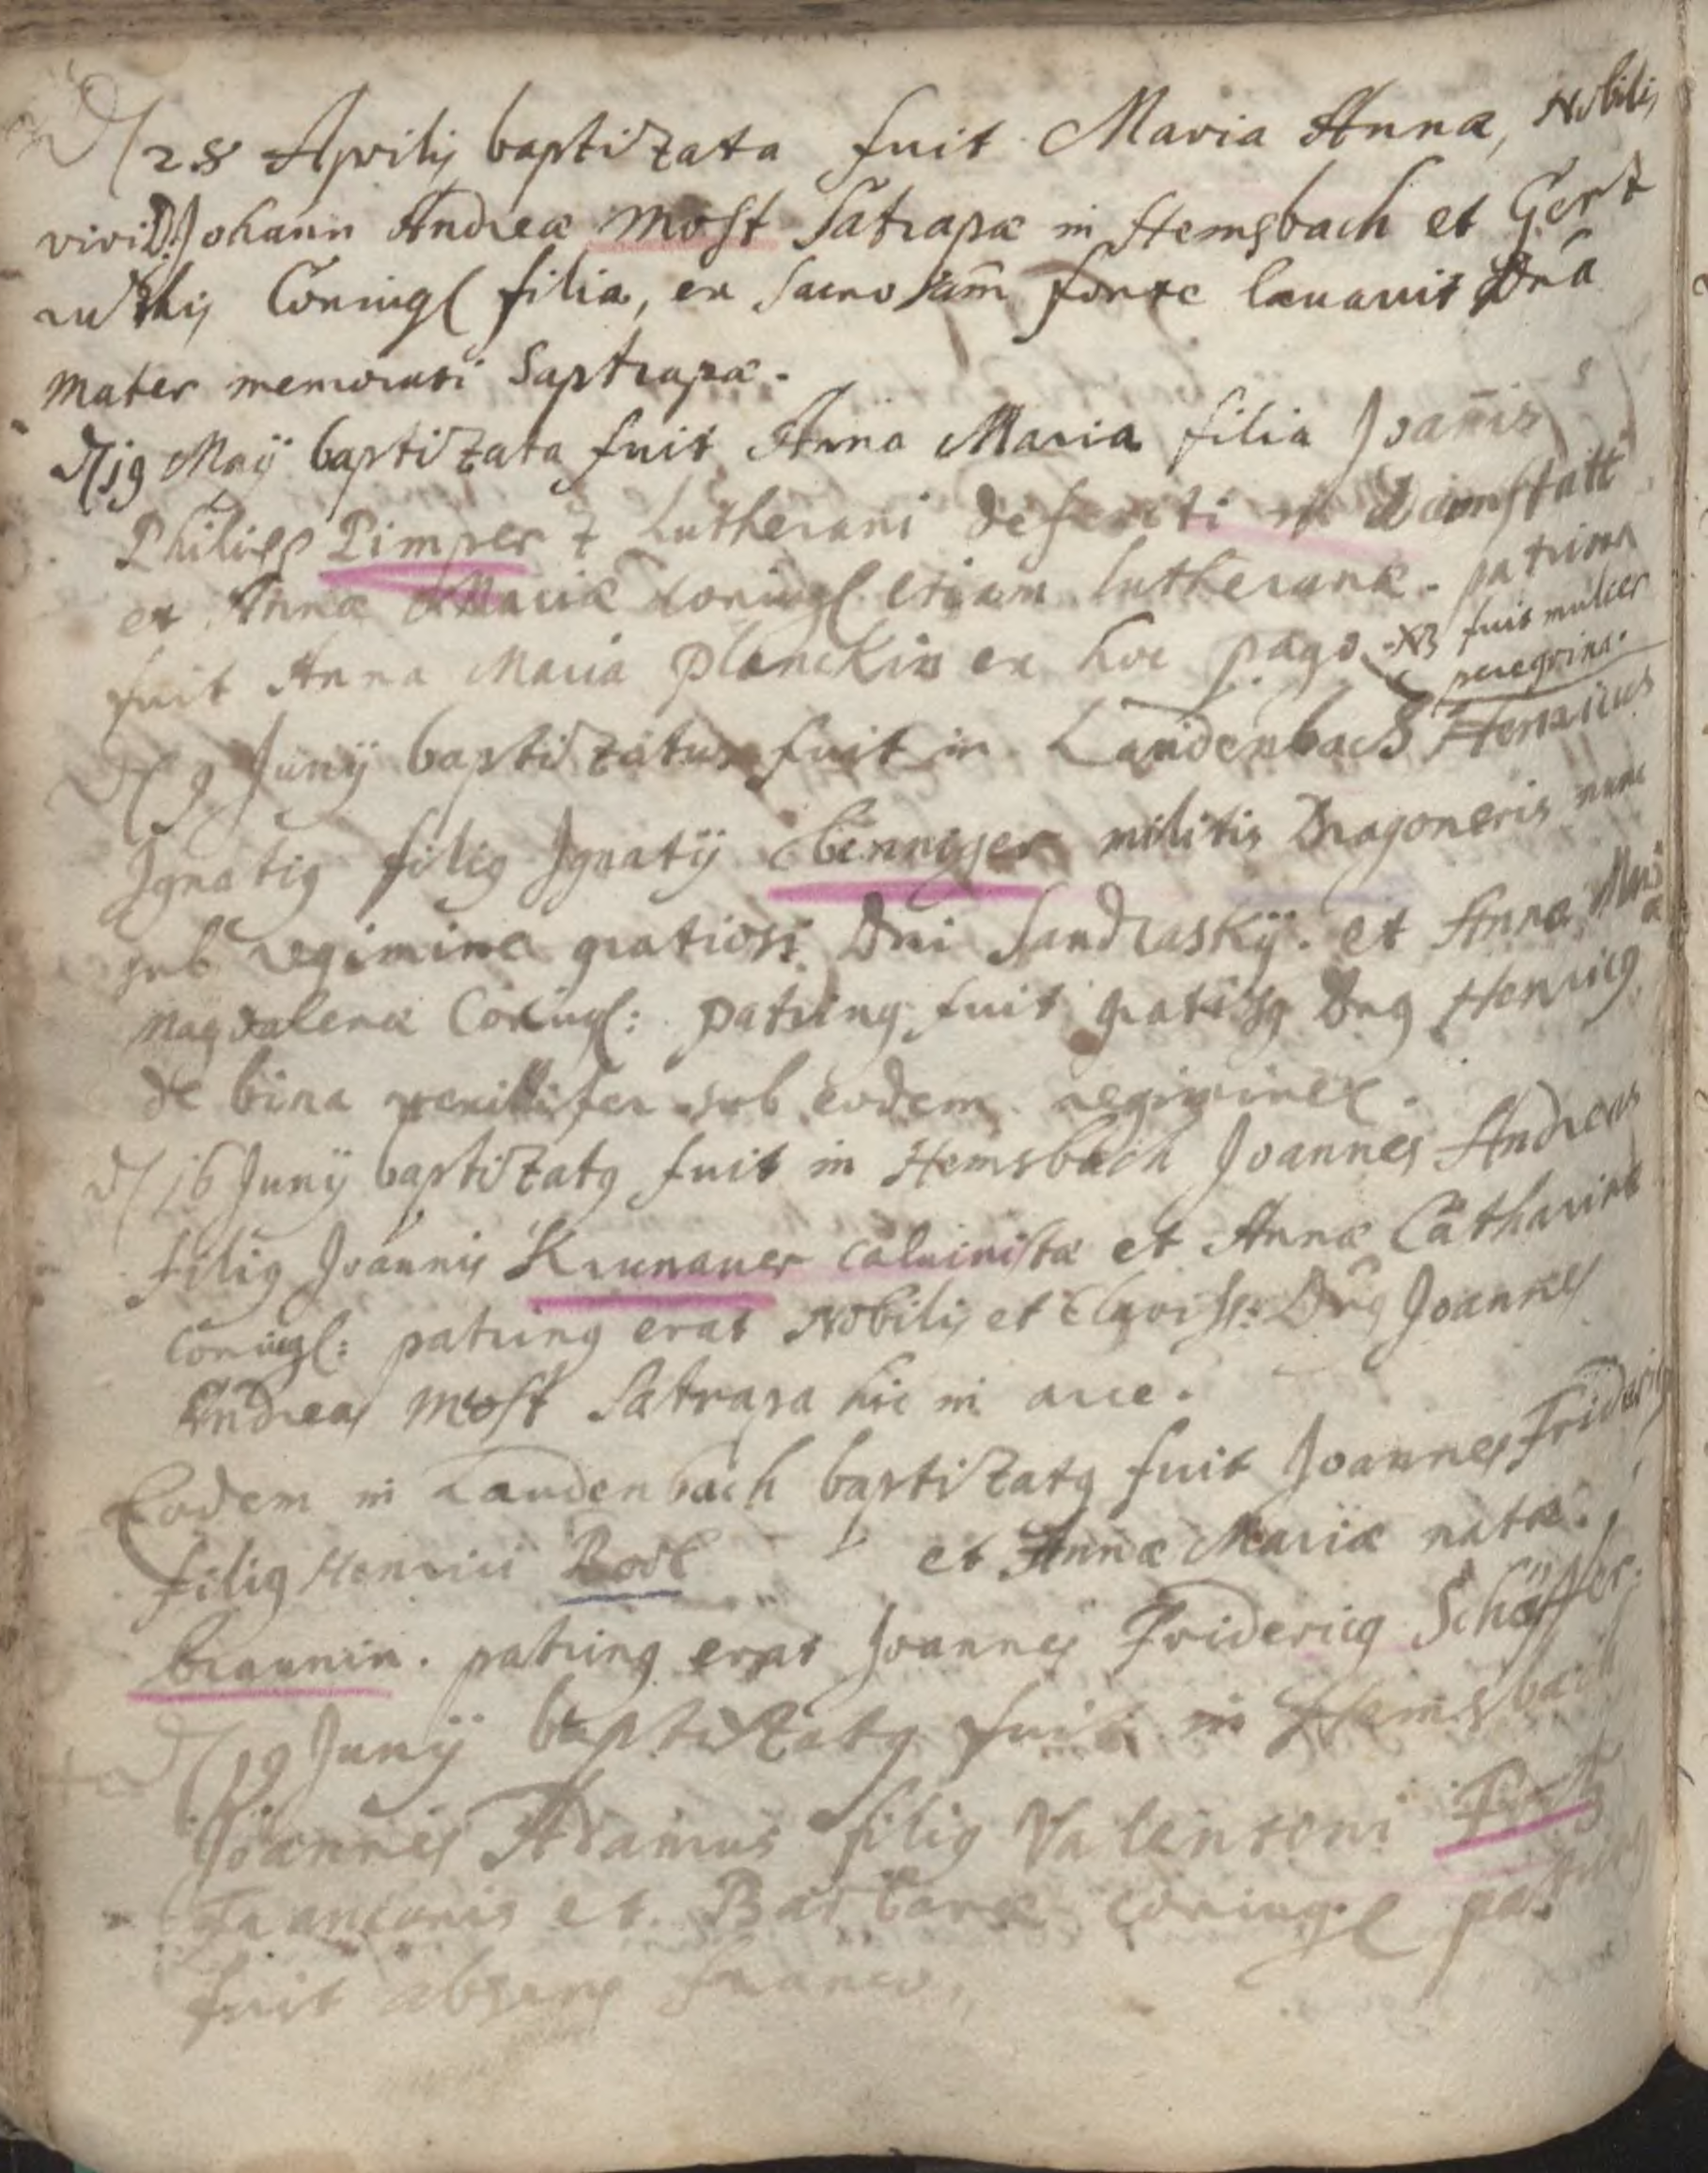 D 28 Aprilis baptizata fuit Maria Anna, Nobilis
viri D. Johann Andreæ Most Satrapæ in Hemsbach et Gert
rudis Coniugl filia, ex sacro fonte leuauit Dna
mater memorati Saptrapæ.
D 19 Maij baptizata fuit Anna Maria filia Joannis
Philipp Pimper Lutherani defuncti Darmstatt
et Annæ Mariæ Coniugl etiam lutheranæ. patrina
fuit Anna Maria Planckin ex hoc pago. NB fuit mulier
peregrina.
D 9 Junij baptizatus fuit in Laudenbach Henricus
Ignatig filig Ignatij Ebinnger militis Dragoneris nunc
sub regimine gratiosi Dni Sandrasky. et Annæ Mariæ
Magdalenæ Coniugl: patring fuit gratisg Dng Henricg
de bina vexillifer sub eodem regimine.
D 16 Junij baptizatg fuit in Hemsbach Joannes Andreas
filig Joannis Krunauer Caluinistæ et Annæ Catharinæ
Coniugl: patring erat Nobilis et Clariss: Dng Joannes
Andreas Most Satrapa hic in arce.
Eodem in Laudenbach baptizatg fuit Joannes Friderig
filig Henrici Bodl et Annæ Mariæ natæ
braunin. patring erat Joannes Fridericg Schäffer.
D 19 Junij baptizatg fuit in Hemsbach
Joannes Adamus filig Valentoni
Franconis et Barbaræ coniugl
fuit absens franco,